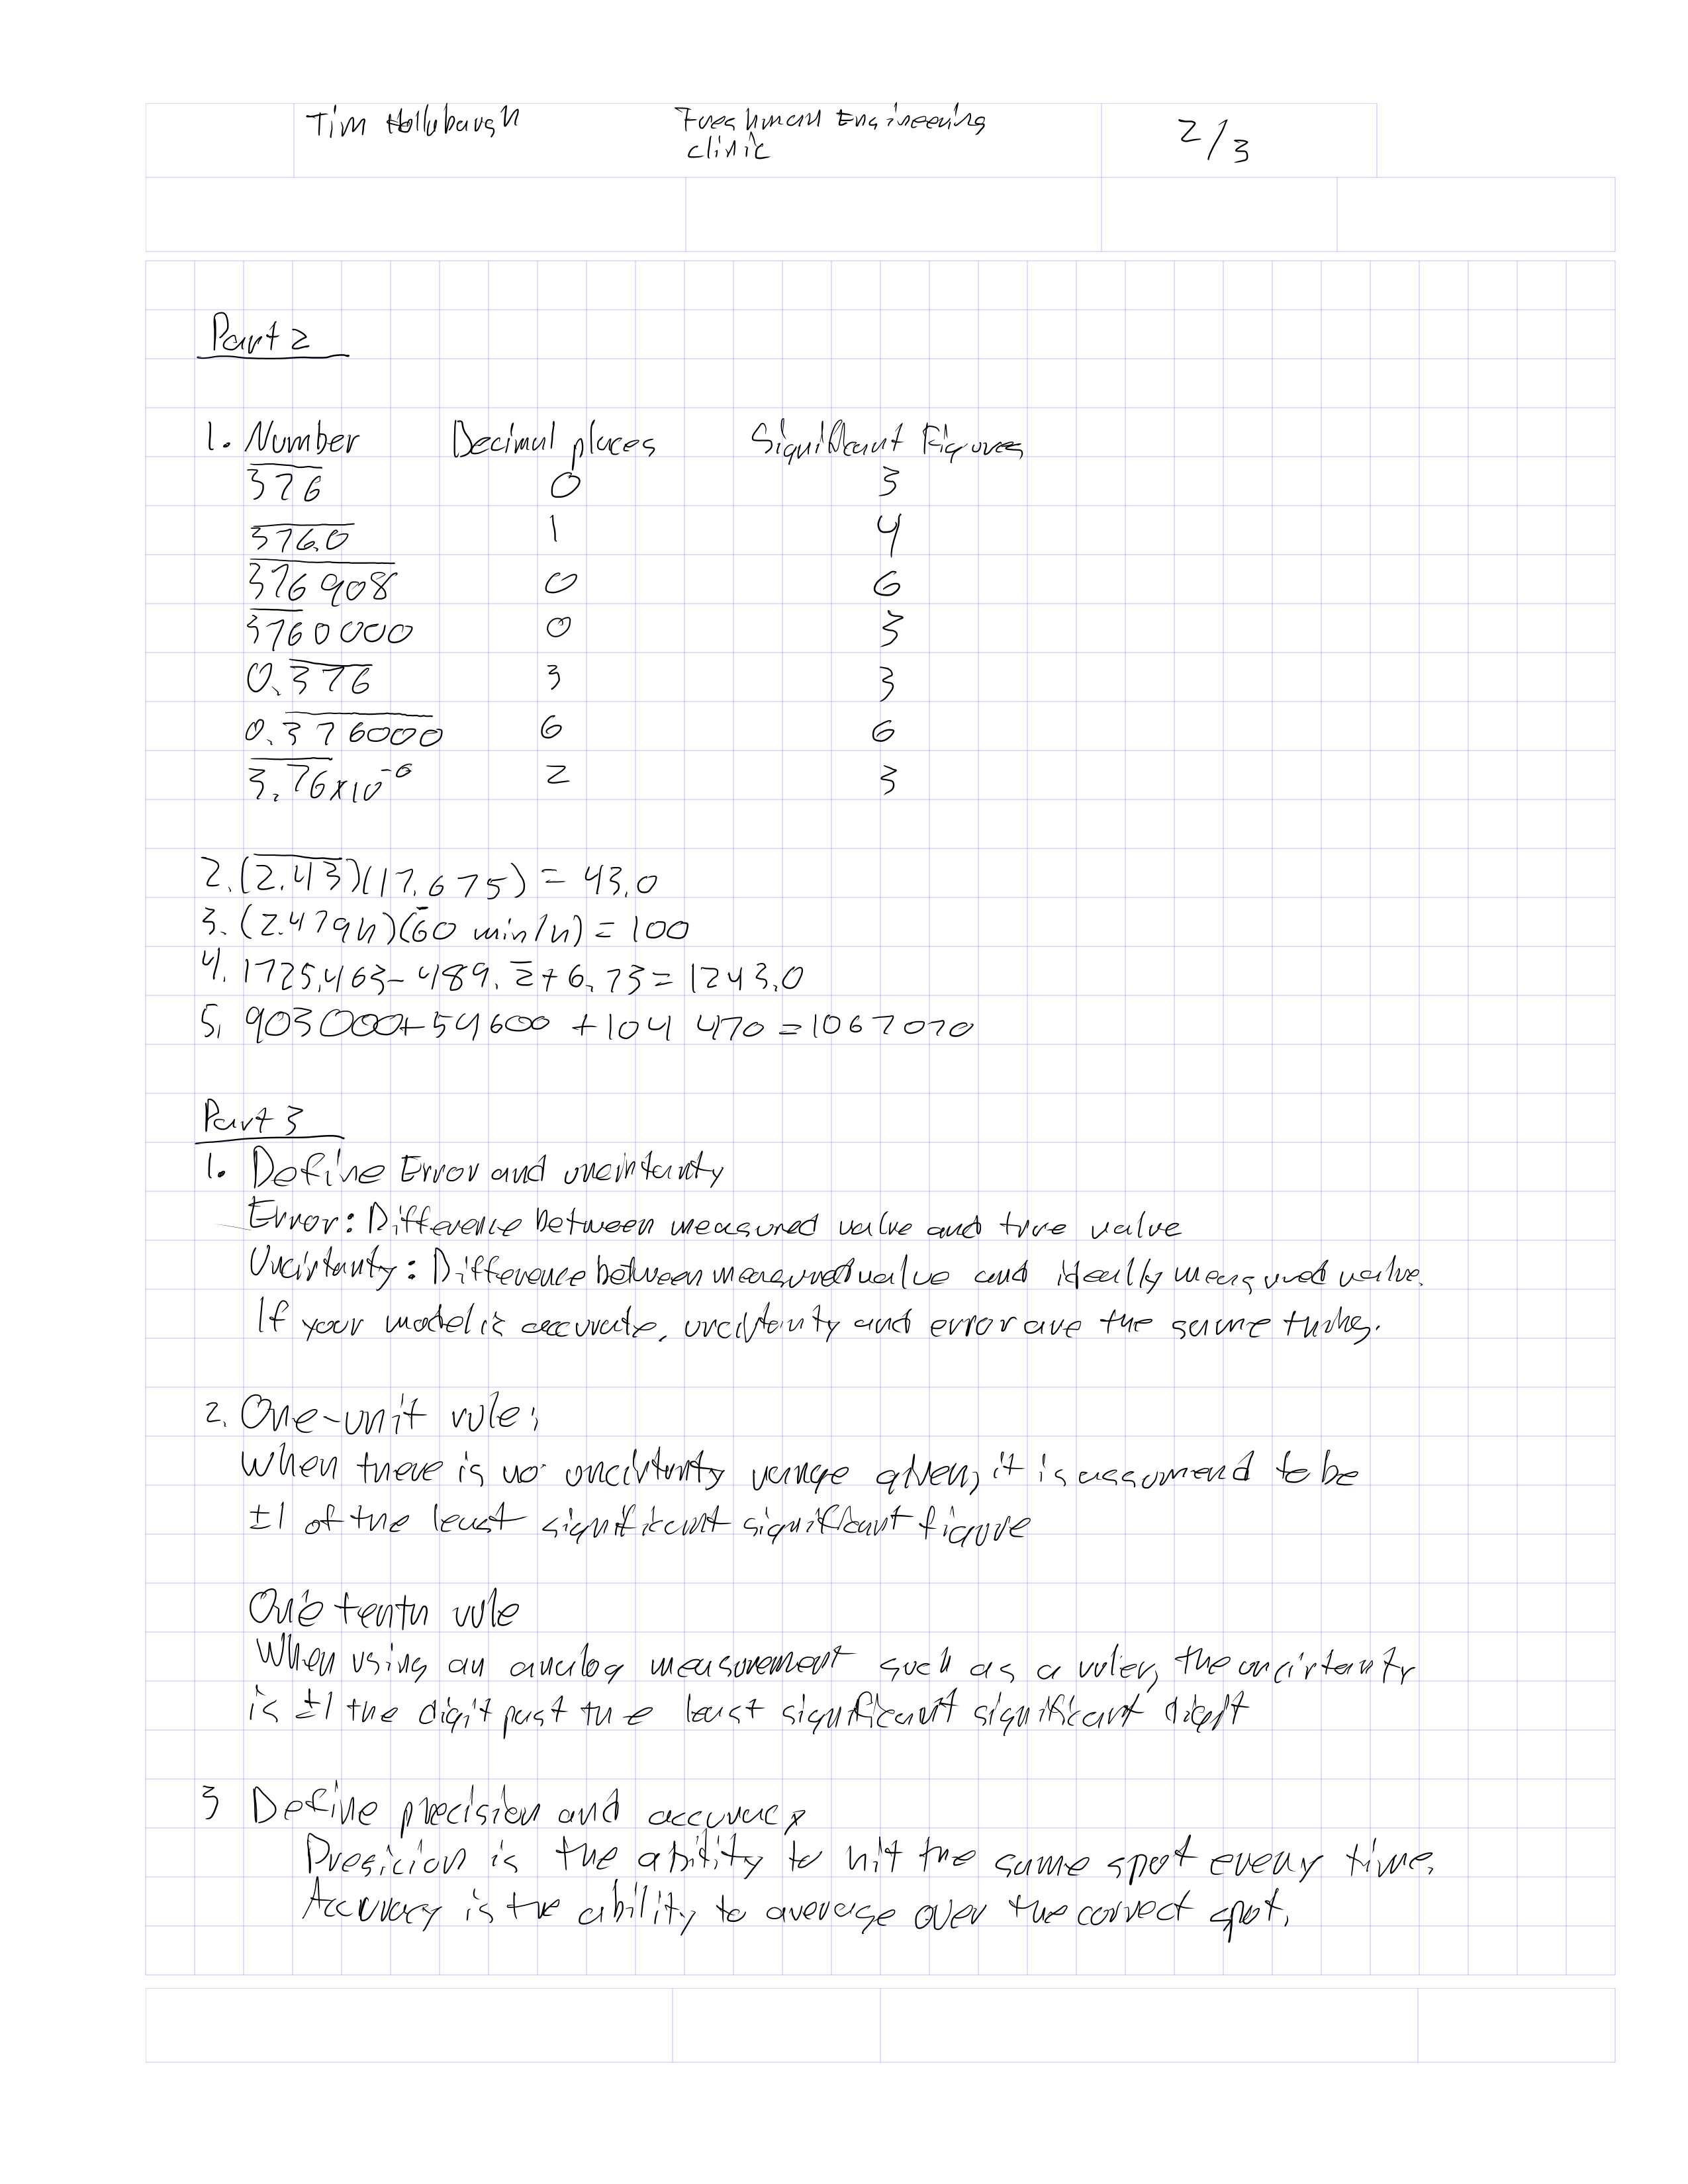 Tim Hollabaugh Freshman Engineering
clinic
2/3
Part 2
1. Number Decimal places Significant Figures
376 0 3
376.0 1 4
376 908 0 6
3760000 0 3
0.376 3 3
0.376000 6 6
3.76x10^-6 2 3
2. (2.43)(17.675) = 43.0
3. (2.479h)(60 min/h) = 100
4. 1725.463 - 489.2 + 6.73 = 1243.0
5. 903000 + 54600 + 104 470 = 1067070
Part 3
1. Define Error and
Error: Difference between measured value and true value
Uncirtanty: Difference between measured value and ideally measured value.
If your model is accurate, uncirtainty and error are the same
2. One-unit rule:
When there is no uncirtanty range given, it is assumend to be
±1 of the least significant significant figure
One tenth rule
When using an analog measurement such as a ruler, the uncirtanty
is ±1 the digit past the least significant significant digit
3 Define precision and accuracy
Presicion is the ability to hit the same spot every time.
Accuracy is the ability to average over the correct spot.